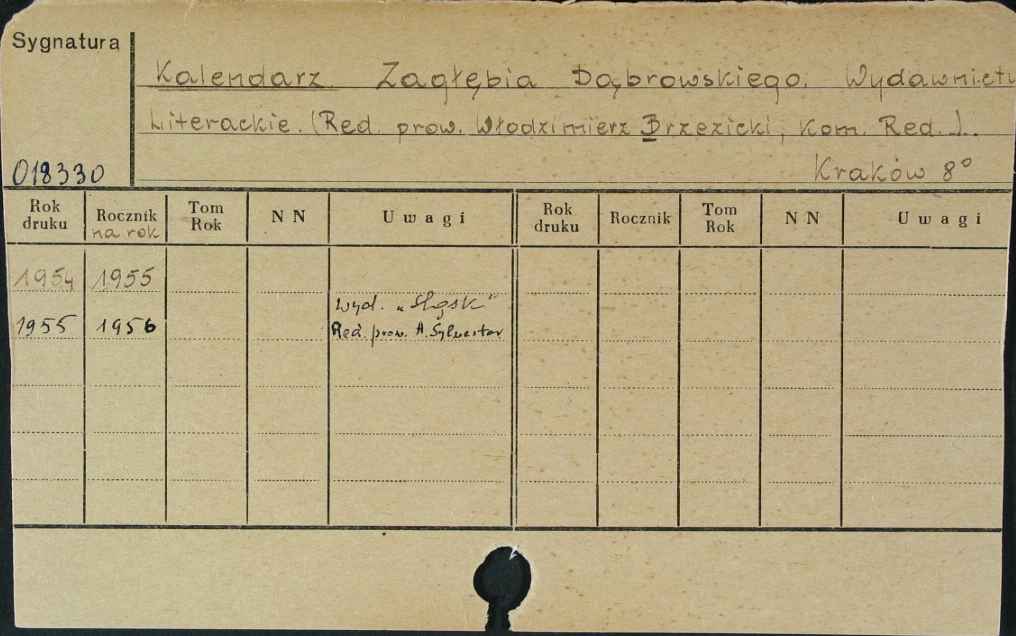 Sygnatura
Kalendarz Zagłębia Dąbrowskiego. Wydawnictw
Literackie. (Red. prow. Włodzimierz Brzezicki, Kom. Red.).
018330 Kraków 8°
Rok druku Rocznik na rok Tom Rok NN Uwagi Rok druku Rocznik Tom Rok NN Uwagi
1954 1955
Wyd. „Śląsk"
1955 1956 Red. prow. A. Sylwester